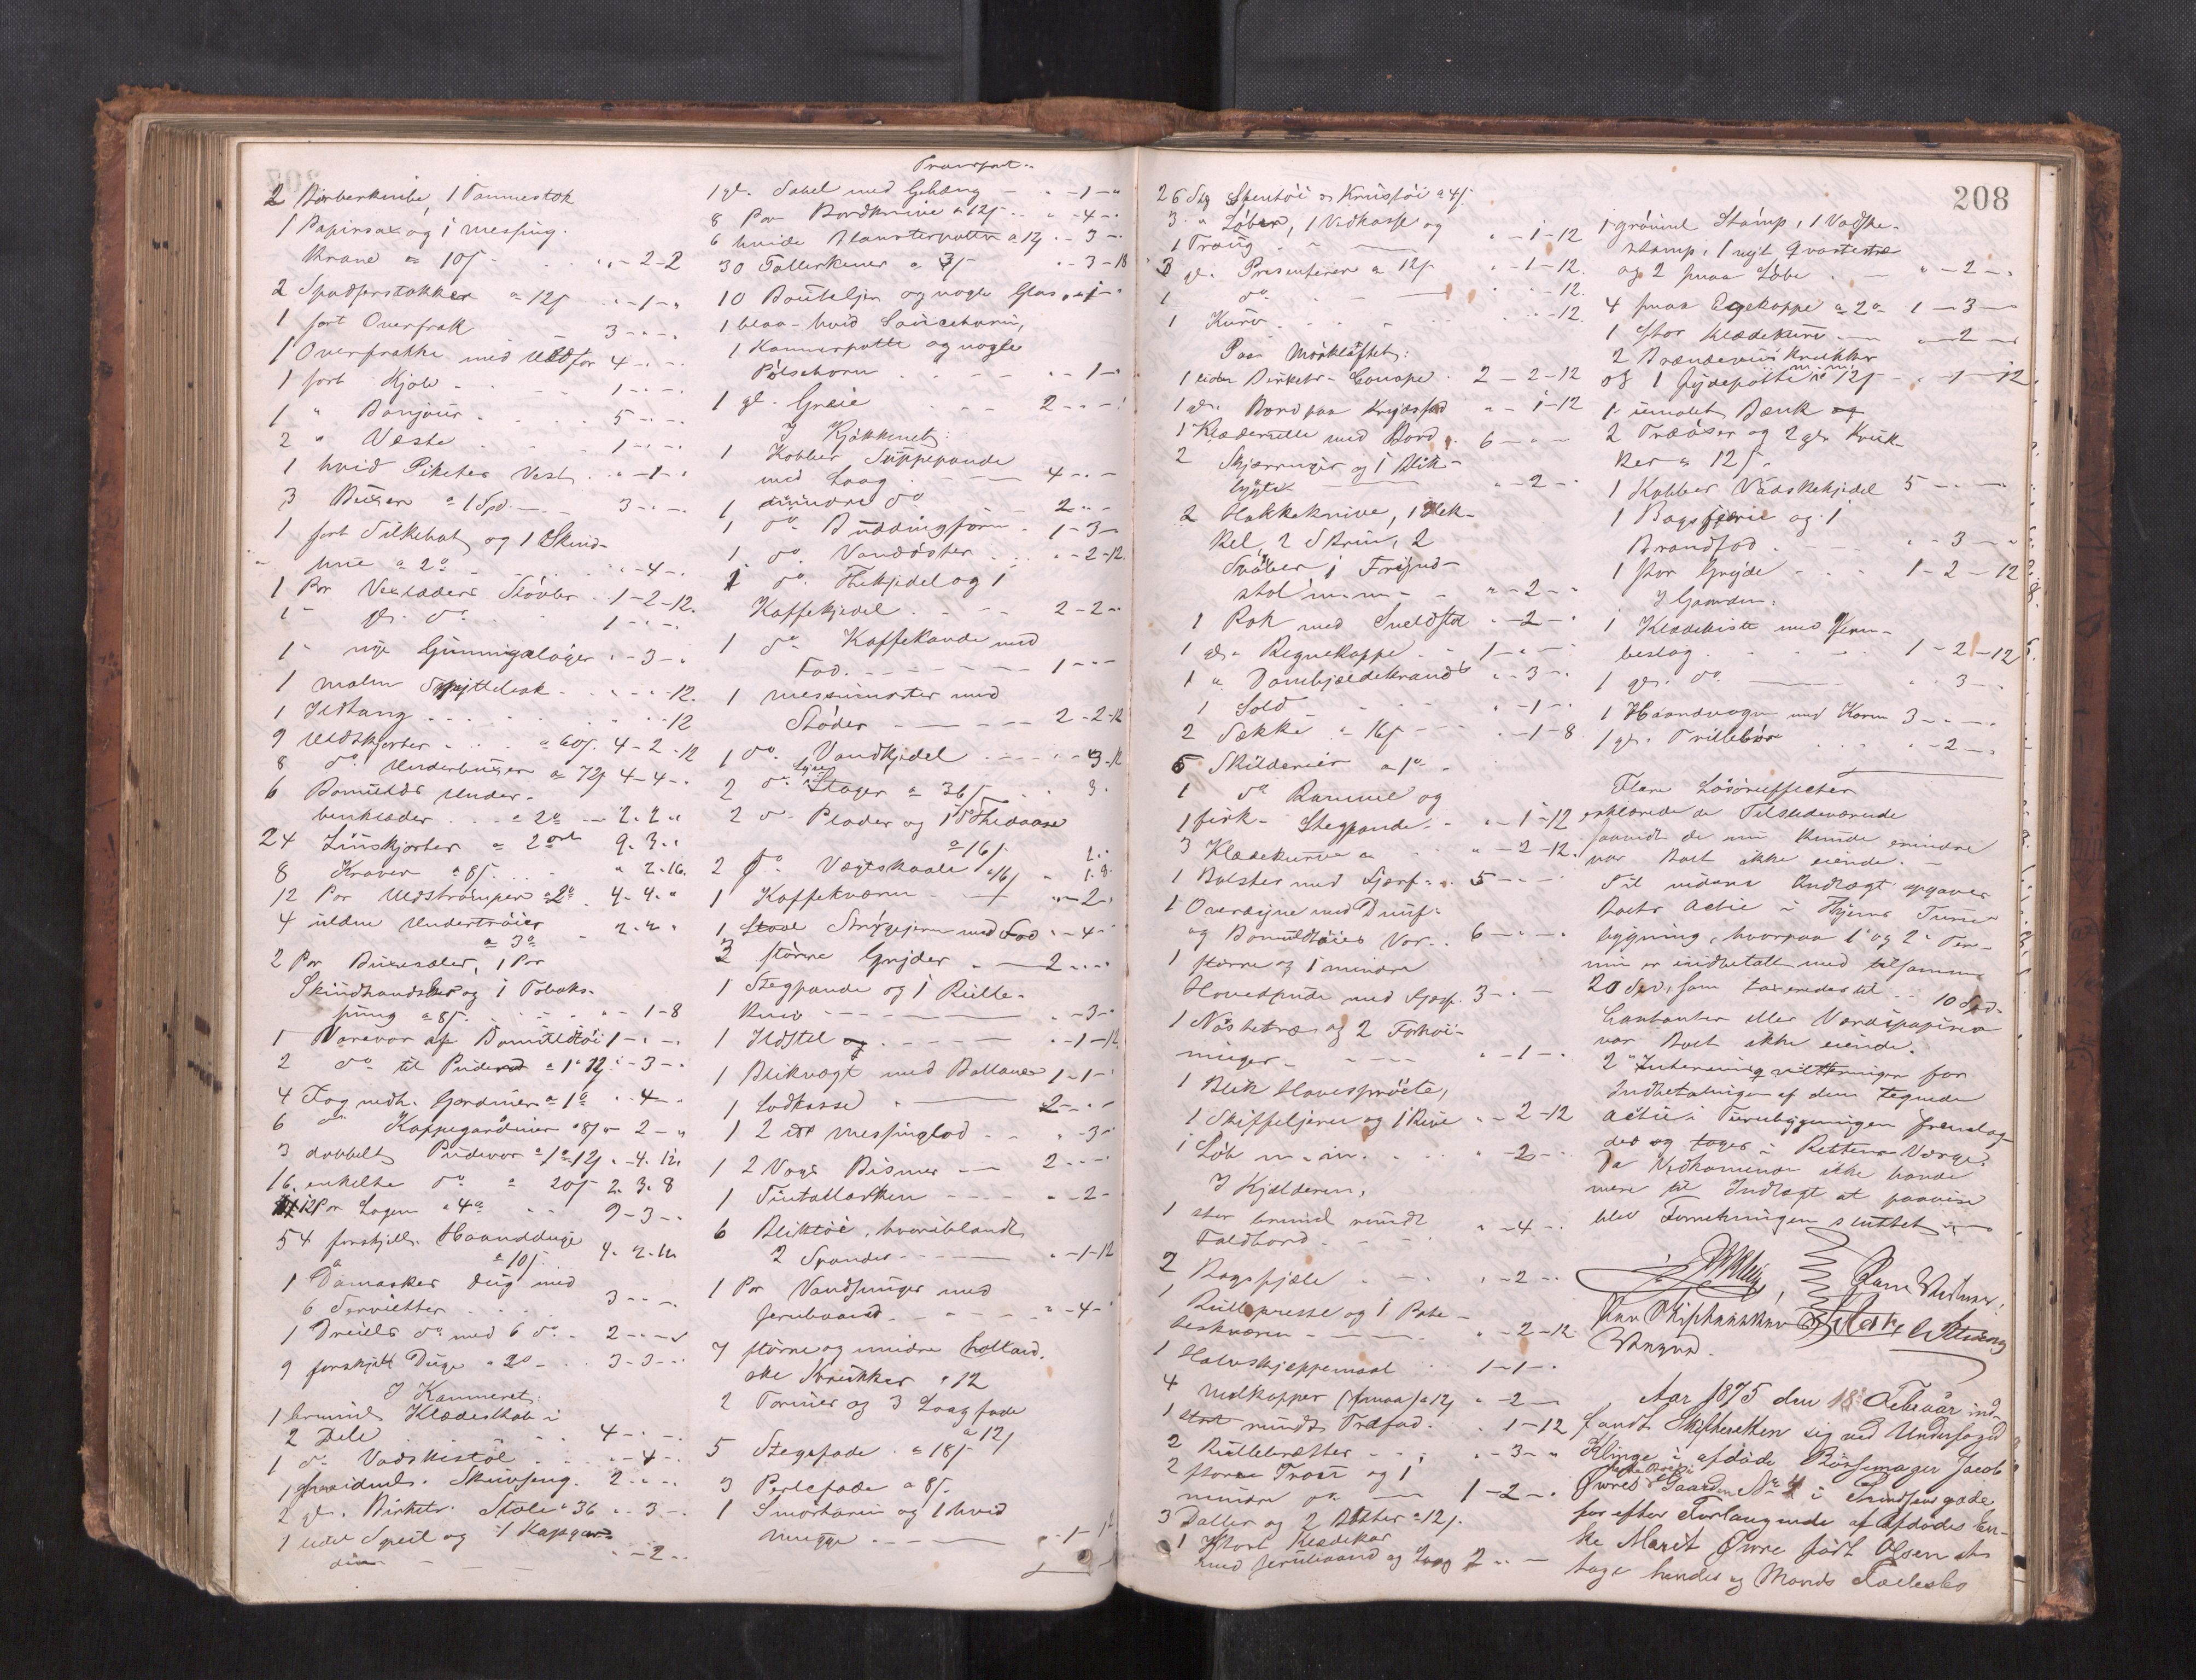 2 Barberknive, 1 Tommestok
1 Papirsax og 1 messing
Krane a 10 s - - 2-2
2 Spadserstokker a 12 s - 1 -
1 sort Overfrak 3 - -
1 Overfrakke med Uldfor 4 - -
1 sort Kjole - - 1 - -
1 " Bonjour - - 5 - -
2 " Veste - - 1 - -
1 hvid Pikets Vest - 1 -
3 Buxer a 1 Spd. - 3 - -
1 sort Silkehat og 1 Skind-
hue a 2 o - 4 -
1 Par Vixlæders Støvler 1-2-12.
1 " gl. do 1 - -
1 " nye Gummigaloger - 3 -
1 malm Spyttebak - - 12.
1 Ildtang - - 12
9 Uldskjorter a 60 s. 4-2-12
8 do Underbuxer a 72 s 4-4-
6 Bomulds Under-
benklæder a 2 o 2.2 "
24 Linskjorter a 2 ort 9.3.
8 Kraver a 8 s. " 2-16.
12 Par Uldstrømper a 2 o 4.4."
4 uldne Undertrøier
a 3 o - 2.2.
2 Par Buxesæler, 1 Par
Skindhandsker og 1 Tobaks-
pung a 8 s. - 1-8
1 Varevar af Bomuldtøi 1 - -
2 do til Puder a 1 o 12 s - 3 -
4 Fag urdh. Gardiner a 1 o - 4 -
6 do Kappegardiner a 8 s - 2 -
3 dobbelt Pudevar a 1 o 12 s - 4.12.
16 enkelte do a 20 s 2.3.8
12 Par Lagen a 4 o 9-3-
54 forskjell. Haandduge
a 10 s. 4.2.12
1 Damaskes dug med
6 Servietter 3 - -
1 Dreiels do med 6 do 2 - -
9 forskjell Duge a 2 o 3-3-
I Kammeret:
1 brunml. Klædeskab i
2 Dele 4 - -
1 do Vadskestol - 4 -
1 Skuvseng. 2 - -
2 gl. Birketr. Stole a 36 - 3 -
1 lidet Speil og 1 Kapgar-
din - 2 -
Transport
1 gl. Sabel med Gehæng - 1 -
8 Par Bordknive a 12 s - 4 -
6 hvide Blomsterpotter a 12 s - 3 -
30 Tallerkener a 3 s - 3-18
10 Bouteljer og nogle Glas - 1 -
1 blaa-hvid Saucehorn,
1 Kammerpotte og nogle
Pølsehorn - 1 -
1 gl. Græie 2 - -
I Kjøkkenet:
1 Kobber Suppepande
med Laag 4 - -
1 mindre do 2 - -
1 do Buddingform 1-3-
1 do Vandøster - 2-12.
1 do Thekjedel og 1
Kaffekjedel 2-2-
1 do Kaffekande med
Fad. 1 - -
1 messingmorter med
Støder 2-2-12
1 do. Vandkjedel - 3-12
2 do Lyse Stager a 36 s - 3.
2 do Plader og 1 do Thedaase
a 16 s 2.-
2 do Vægtskaale a 16 s " 1.8.
1 Kaffekværn - 2 -
1 Strygejern med Lod - 4 -
3 større Gryder - 2 - -
1 Stegpande og 1 Rulle-
kniv - 3 -
1 Ildstel - 1-12
1 Blikvægt med Ballance 1-1-
1 Lodkasse 2 - -
1 2 # Messinglod - 3 -
1 2 Vogs Bismer 2 - -
1 Tintallerken - 2 -
6 Bliktøi, hvoriblandt
2 Spande - 1-12
1 Par Vandspanger med
Jernbaand - 4 -
7 større og mindre holland-
ske Krukker a 12
2 Teriner og 3 Laagfade
a 12 s
5 Stegefade a 18 s
3 Perlefade a 8 s.
1 Smørterrin og 1 hvid
Mugge - 1-12
208
26 Stk Stentøi og Krustøi a 4 s.
3 " Løber, 1 Vedkasse og
1 Traug - 1-12
3 gl. Presenterer a 12 s - 1-12.
1 do - - 12.
1 Kurv - - 12.
Paa Mørkloftet:
1 liden Birketr. Canape 2-2-12
1 gl. Bord paa Krydsfod - 1-12
1 Klæderulle med Bord 6 - -
2 Skjæringer og 1 Blik-
lygte - 2 -
2 Hakkeknive, 1 Hek-
kel, 2 Skrin, 2
Svøber, 1 Frøynd-
stol m.m. - 2 -
1 Rok med Sneldstol - 2 -
1 gl. Regnekappe 1 - -
1 " Dombjældekrands - 3 -
1 Sold - 1 -
2 Sække a 16 s - 1-8
5 Skilderier a 1 o
1 do Ramme og
1 firk. Stegpande - 1-12
3 Klædekurve a - 2-12.
1 Bolster med Fjærf. 5 - -
1 Overdyne med Dunf.
og Bomuldtøies Var. 6 - -
1 større og 1 mindre
Hovedpude med Fjærf. 3 - -
1 Nøstetræ og 2 Forhøi-
ninger - 1 -
1 Blik Havesprøite,
1 Skiffeljern og 1 Rive - 2-12
1 Løb m.m. - 2 -
I Kjælderen,
1 stor brunml rundt
Foldbord - 4 -
2 Bagefjæle - 2 -
1 Rullepresse og 1 Pote-
teskværn - 2-12
1 Halvskjeppemaal 1-1-
4 Melkopper (smaa) a 12 s - 2 -
1 stort rundt Træfad - 1-12
2 Rullebrætter - 3 -
2 større Traug og 1
mindre do 1-2-
3 Daller og 2 Bøtter a 12 s.
1 Stort Klædekar
med Jernbaand og Laag 2 - -
1 grøntml Stamp, 1 Vadske-
stamp, 1 nyt Qvarterstræ
og 2 smaa Løbe - 2 -
4 smaa Eggekoppe a 2 o 1-3-
1 stor Klædekurv - 2 -
2 Brændeviinskrukker
og 1 Syldepotte m.m. a 12 s - 1-12.
1 umalet Bænk og
2 Træøser og 2 gl. Kruk-
ker a 12 s.
1 Kobber Vadskekjedel 5 - -
1 Bagefjærie og 1
Brandfod - 3 -
1 stor Gryde 1-2-12
I Gaarden:
1 Klædekiste med Jern-
beslag 1-2-12
1 gl. do - 3 -
1 Haandvogn med Karm 3 - -
1 gl. Trillebør - 2 -
Flere Løsøreffecter
erklærede de Tilstedeværende
saavidt de nu kunde erindre
var Boet ikke eiende. -
Til videre Indtægt opgaves
Boets Actie i Byens Turn-
bygning, hvorpaa 1 o og 2 o Ter-
min er indbetalt med tilsammen
20 Spd., som taxeredes til 10 Spd.
Contanter eller Værdipapirer
var Boet ikke eiende.
2 Interimsqvitteringer for
Indbetalingen af den tegnede
Actie i Turnbygningen fremlag-
des og toges i Rettens Værge.
Da Vedkommende ikke havde
mere til Indtægt at paavise
blev Forretningen sluttet
Aar 1875 den 18 Februar ind-
fandt Skifteretten sig ved Undersaged
Klinge i afdøde Børsemager Jacob
Øwres Gaard No 4 i
for efter Forlangende af Afdødes En-
ke Marit Øwre født Olsen at
tage hendes og Mands Fællesbo